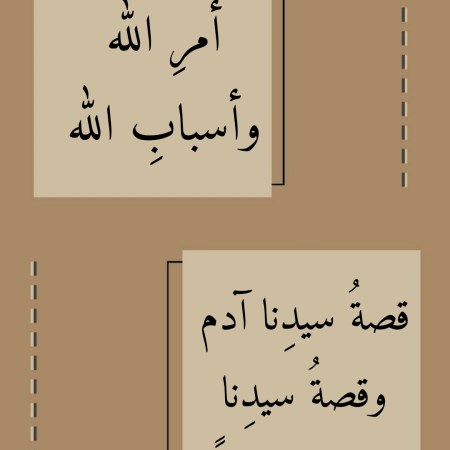 أمرِ الله
وأسبابِ الله
قصةُ سيدِنا آدم
وقصةُ سيدِنا